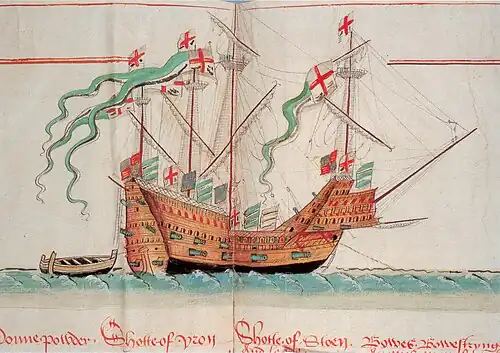 donne powder . Shotte of yron Shotte of Stoen . Bowes Bowestryng